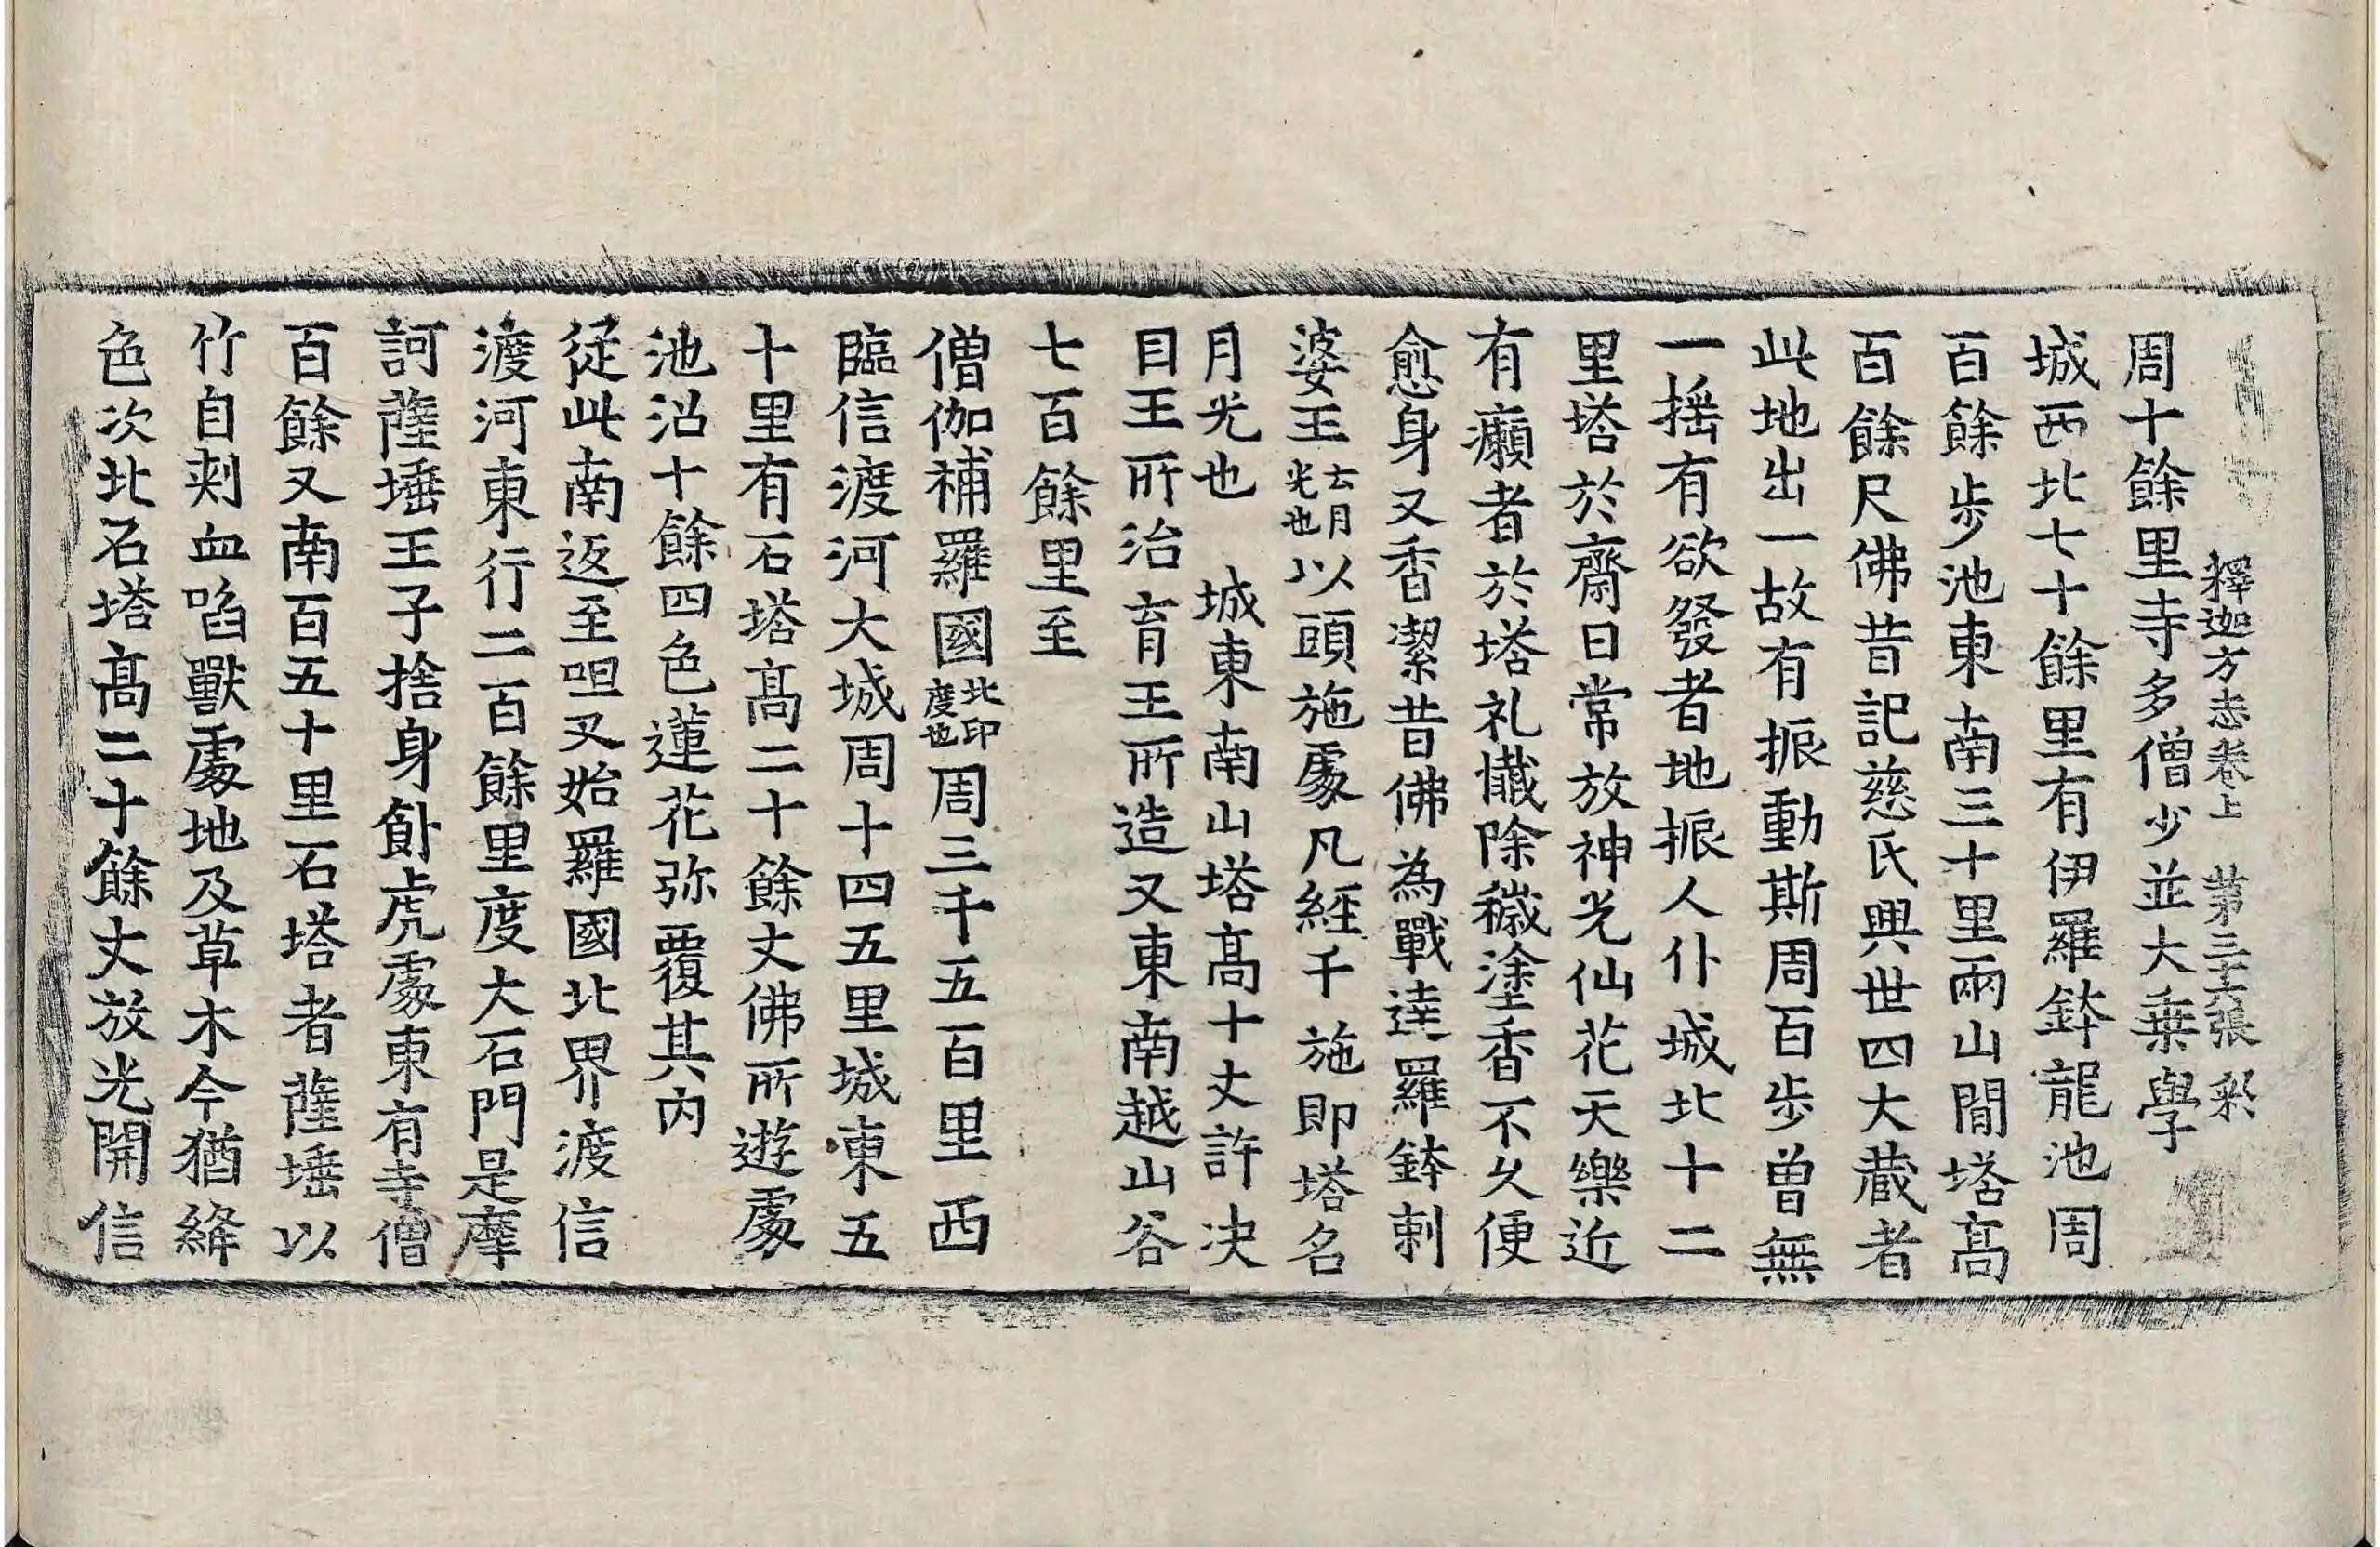 釋迦方志卷上 第三十六張 彩
周十餘里寺多僧少並大乗學
城西北七十餘里有伊羅鉢龍池周
百餘步池東南三十里兩山間塔高
百餘尺佛昔記慈氏興世四大蔵者
此地出一故有振動斯周百步曽無
一揺有欲發者地振人仆城北十二
里塔於齋日常放神光仙花天樂近
有癩者於塔礼懴除穢塗香不久便
愈身又香潔昔佛為戰達羅鉢剌
婆王云月光也以頭施處凡經千施即塔名
月光也 城東南山塔高十丈許决
目王所治育王所造又東南越山谷
七百餘里至
僧伽補羅國北印度也周三千五百里西
臨信渡河大城周十四五里城東五
十里有石塔高二十餘丈佛所遊處
池沼十餘四色蓮花弥覆其内
從此南返至呾叉始羅國北界渡信
渡河東行二百餘里度大石門是摩
訶薩埵王子捨身飼虎處東有寺僧
百餘又南百五十里石塔者薩埵以
竹自刺血啗獸處地及草木今猶絳
色次北石塔高二十餘丈放光開信